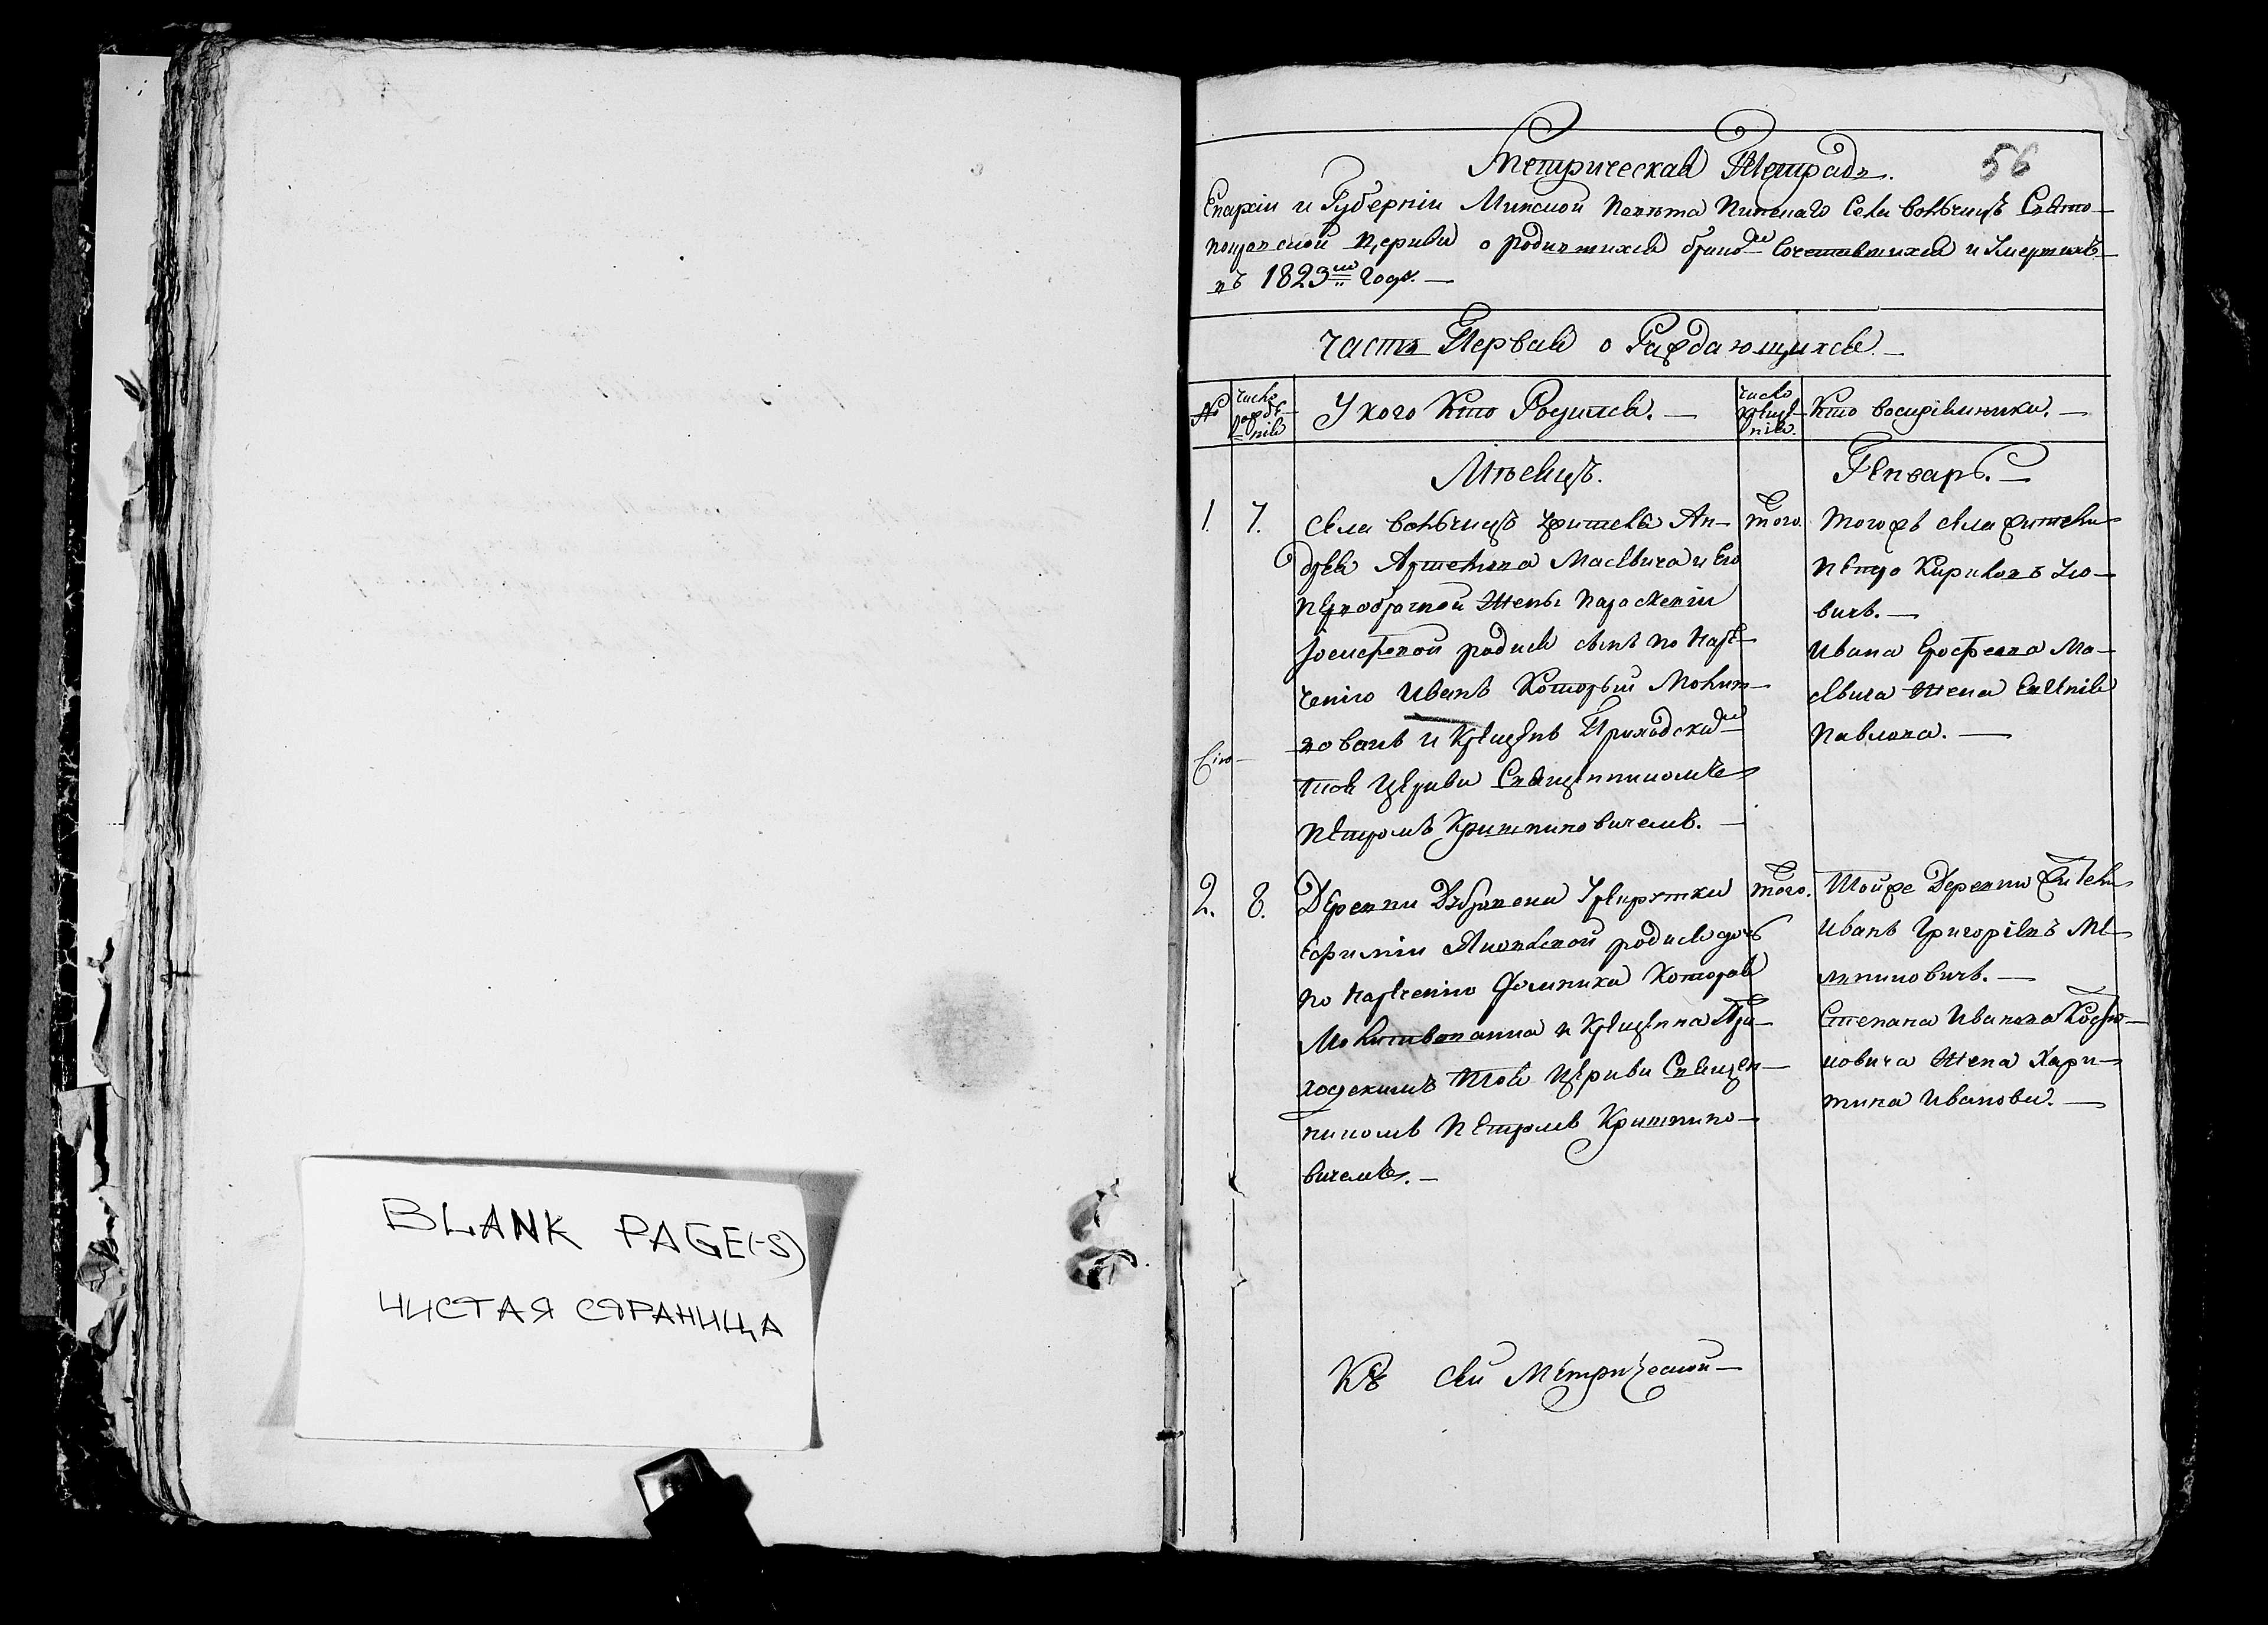 BLANK PAGE(-S)
ЧИСТАЯ СТРАНИЦА
56
Метрическая Тетрадь.
Епархіи и Губерніи Минской Повѣта Пинскаго Села Вольчицъ Свято-
Церкви о родившихся бракомъ Сочетавшихся и Умершихъ
въ 1823мъ годѣ. —
Часть Первая о Раждающихся. —
№
Число рождѣнія
У кого Кто Родился. —
Число крещенія.
Кто воспріемники. —
Мѣсяцъ.
Генварь. —
1.
7.
Села Вольчицъ жителя Ан-
дрея Артемова Масевича и Его
первобрачной Жены Параскевіи
Іосифовой родися сынъ по наре-
ченію Иванъ Который Молит-
вованъ и Крещенъ Приходскимъ
Той Церкви Священникомъ
Петромъ Критниновичемъ. —
того.
Тогожъ села житель
Кириловъ
вичъ. —
Ивана Ерофеева Ма-
севича Жена Евгенія
Павлова. —
2.
8.
Деревни
Ефиміи Яковлевой родися дочь
по нареченію Домникія Которая
Молитвованна и Крещенна При-
ходскимъ Той Церкви Священ-
никомъ Петромъ Критнино-
вичемъ. —
того.
Тойже Деревни житель
Иванъ Григоріевъ Ме-
новичъ. —
Степана Иванова
новича Жена Хари-
тина Иванова. —
Къ сей Метрической —